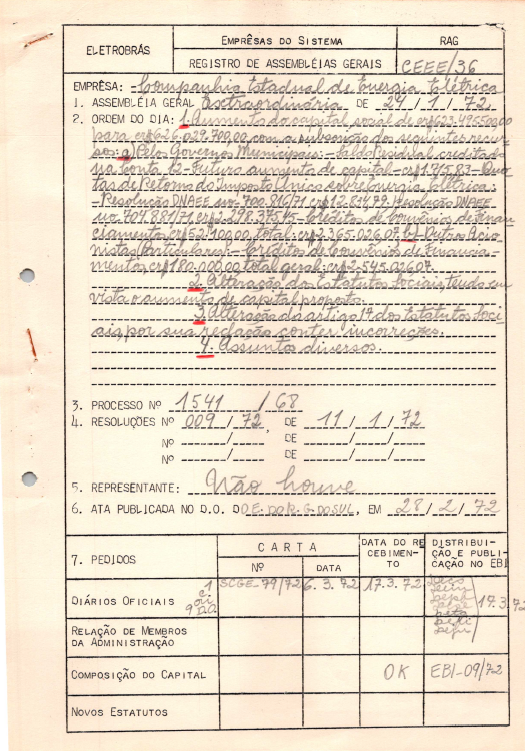 ELETROBRÁS
EMPRÊSAS DO SISTEMA
RAG
REGISTRO DE ASSEMBLÉIAS GERAIS
CEEE/36
EMPRÊSA: - Companhia Estadual de Energia Elétrica
1. ASSEMBLÉIA GERAL Extraordinária DE 24/1/72
2. ORDEM DO DIA: 1. Aumento do capital social de
para cr$ 626.029.700,00 com a subscrição dos seguintes recur
sos: a) Pelos Governos Municipais: - Saldo Residual creditado
na conta 12 - Futuro aumento de capital - cr$ 195,83 - Quo
tas de Retorno do Imposto Único sobre Energia Elétrica:
- Resolução DNAEE nº 700.816/71 Resolução DNAEE
nº 704.881/71 Créditos de Convênio de Finan
ciamento cr$ 52.100,00 total: cr$ 2.365.026,07 b) Outros Acio
nistas Particulares: - Créditos de Convênios de Financia-
mentos cr$ 180.000,00 total geral: cr$ 2.545.026,07
2. Alteração dos Estatutos Sociais, tendo em
vista o aumento de capital proposto.
3. Alteração do artigo 17 dos Estatutos Soci
ais, por sua redação conter incorreções.
4. Assuntos diversos.
3. PROCESSO Nº 1541 / 68
4. RESOLUÇÕES Nº 009 / 72, DE 11 / 1 / 72
Nº / DE / /
Nº / DE / /
5. REPRESENTANTE: Não houve
6. ATA PUBLICADA NO D.O. DO E. DO R.G. DO SUL, EM 28 / 2 / 72
7. PEDIDOS
CARTA
Nº
DATA
DATA DO RE
CEBIMEN-
TO
DISTRIBUI-
ÇÃO E PUBLI-
CAÇÃO NO EBI
DIÁRIOS OFICIAIS
SCGE-79/72
6.3.72
17.3.72
17.3.72
RELAÇÃO DE MEMBROS
DA ADMINISTRAÇÃO
COMPOSIÇÃO DO CAPITAL
OK
EBI-09/72
NOVOS ESTATUTOS